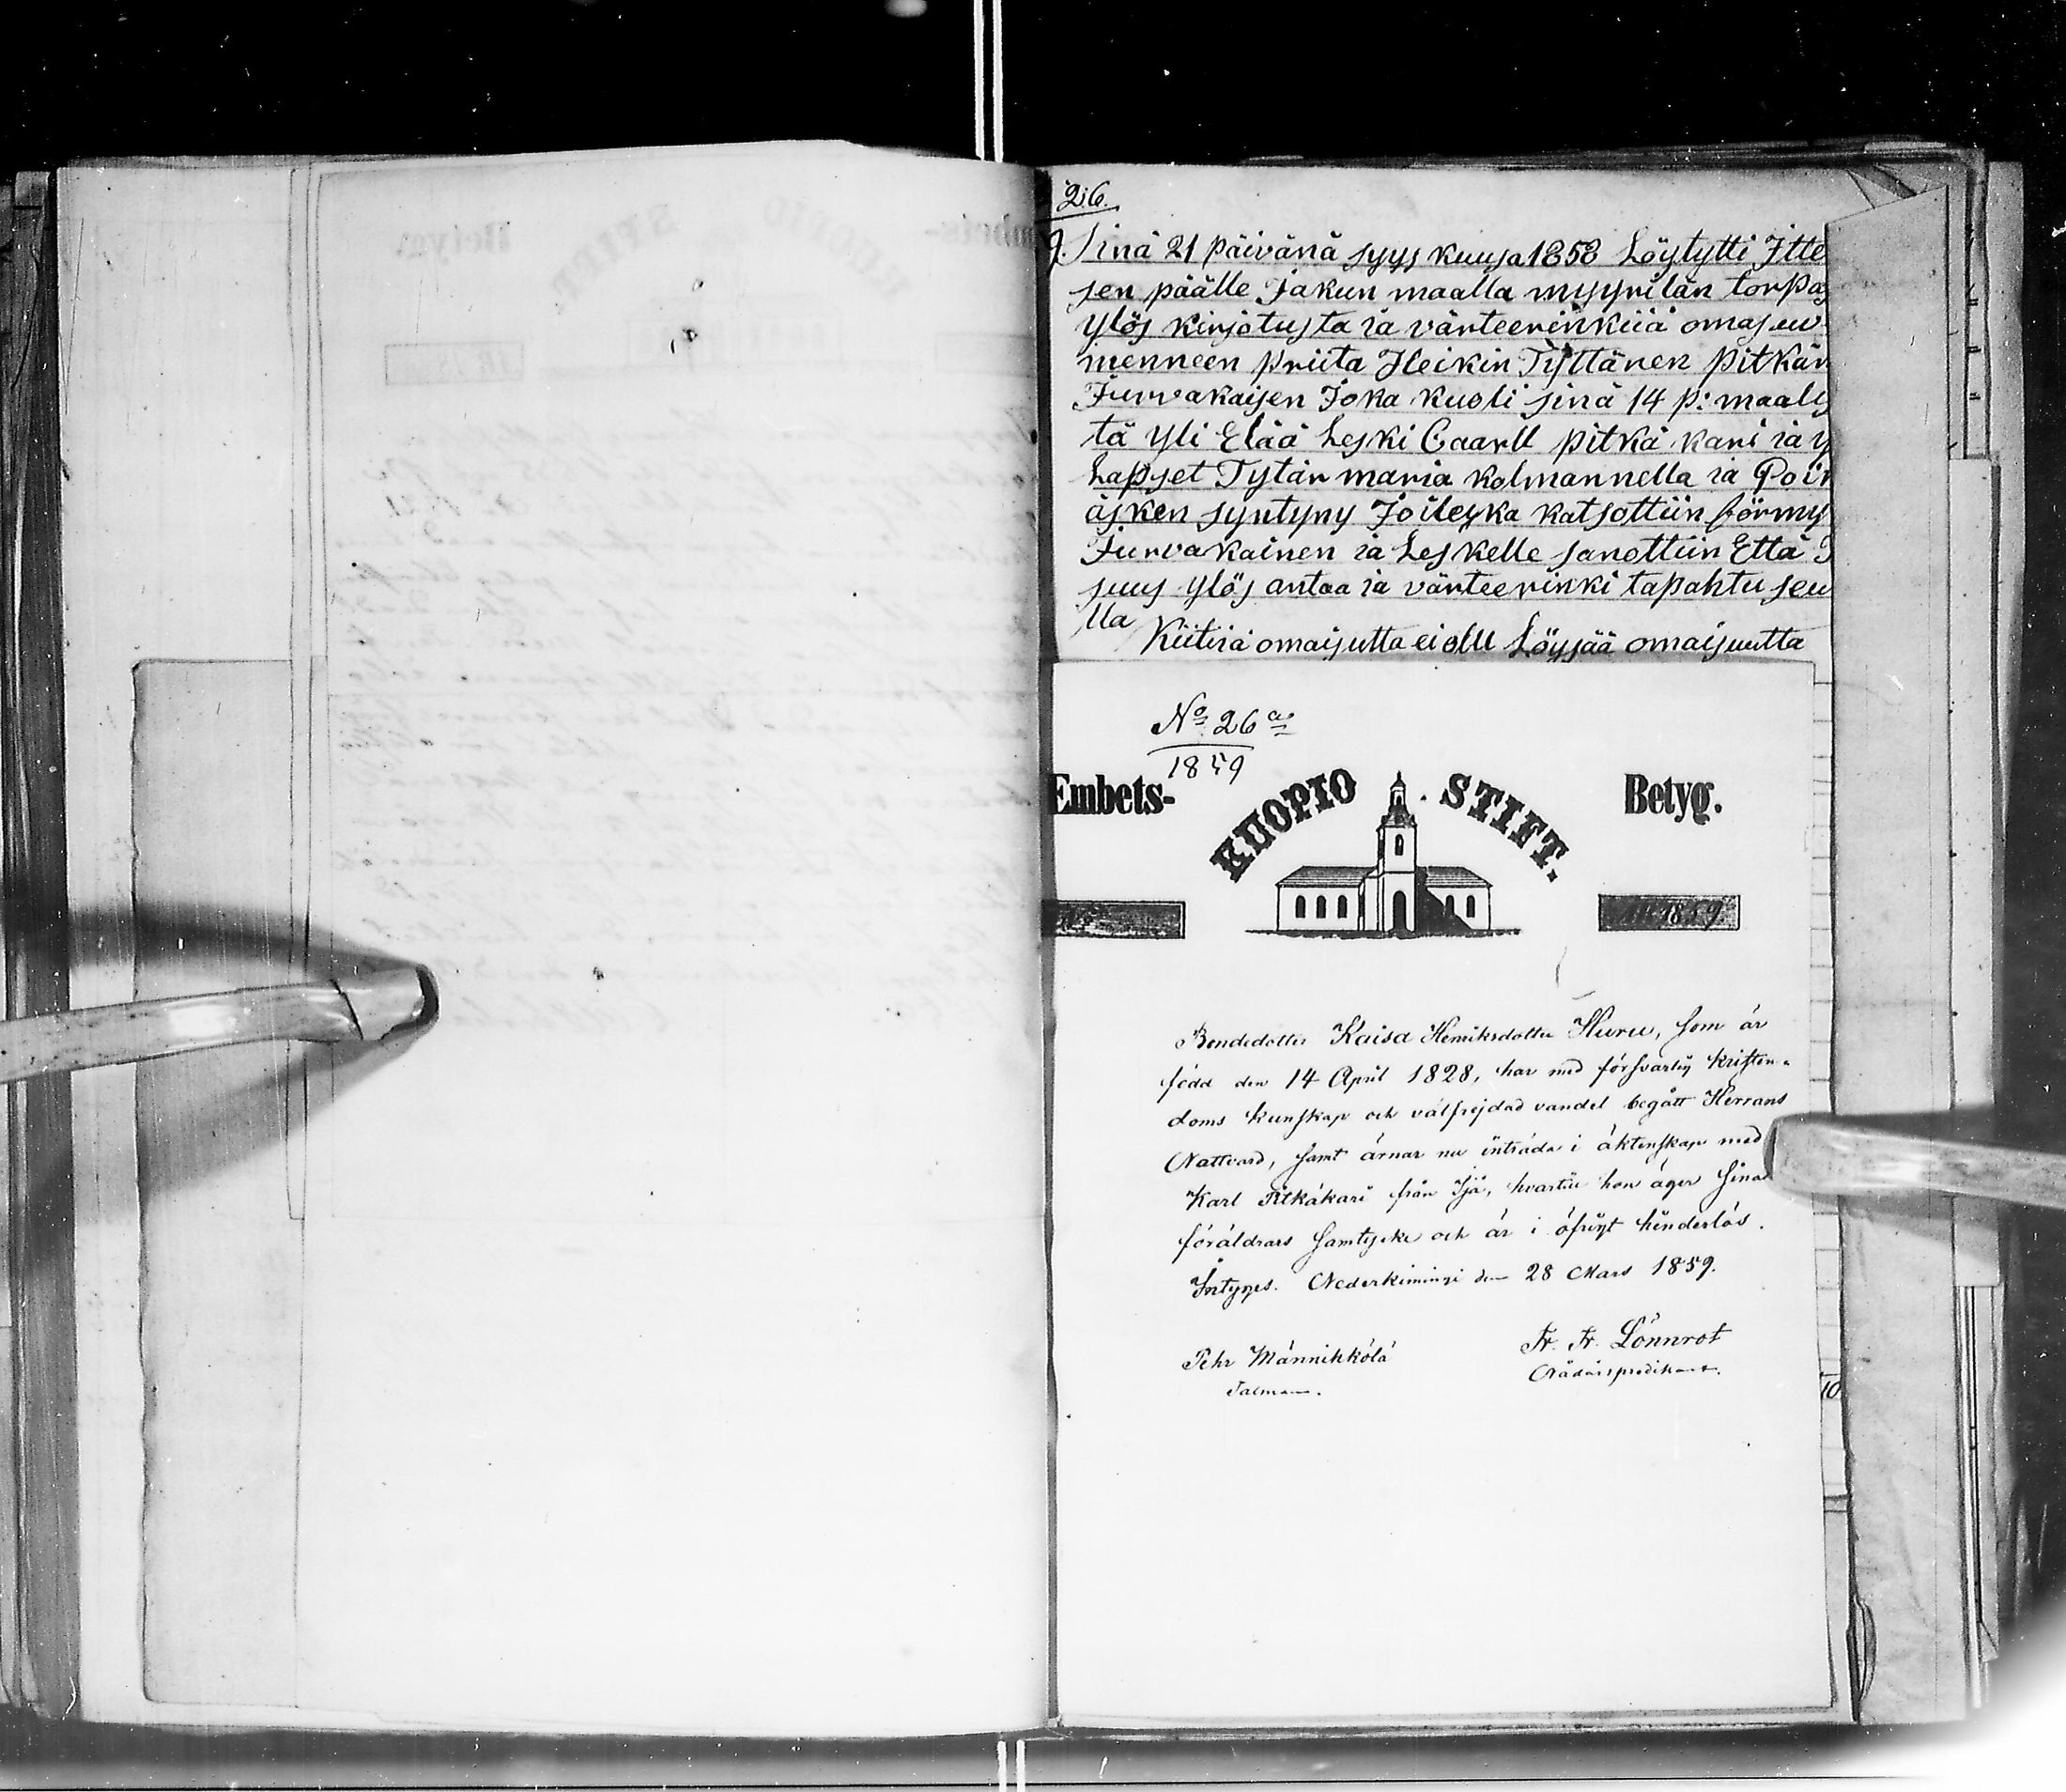 26.
Sinä 21 päivänä syys kuusa 1858 Löytytti Itte
sen päälle Jakun maalla myyrilän torpas
ylös kirjotusta ia värteerinkiiä omasuu
menneen priita Heikin Tyttänen Pitkän
Jurvakaisen Joka kuoli sinä 14 p: maalis
tä yli Elää Leski Caarll pitkä kari ia y
Lapset Tytär maria kolmannella ia Poik
äsken syntyny Joileska katsottiin förmy
Jurvakainen ia Leskelle sanottiin Että
suus ylös antaa ia värteerinki tapahtu seu
lla
Kiitiä omaisutta ei ollu Löysää omaisuutta
No 26 a
1859
Embets-
KUOPIO STIFT.
Betyg.
1859.
Bondedotter Kaisa Henriksdotter Huru, som är
född den 14 April 1828, har med försvarlig kristen-
doms kunskap och välfrejdad vandel begått Herrans
Nattvard, samt ärnar nu inträda i äktenskap med
Karl Pitkäkari från Ijå, hvartill hon äger sina
föräldrars samtycke och är i öfrigt hinderlös.
Intyges. Nederkiminge den 28 Mars 1859.
Pehr Männikkölä
Talman.
Fr. Fr. Lönnrot
Nådårspredikant.
10